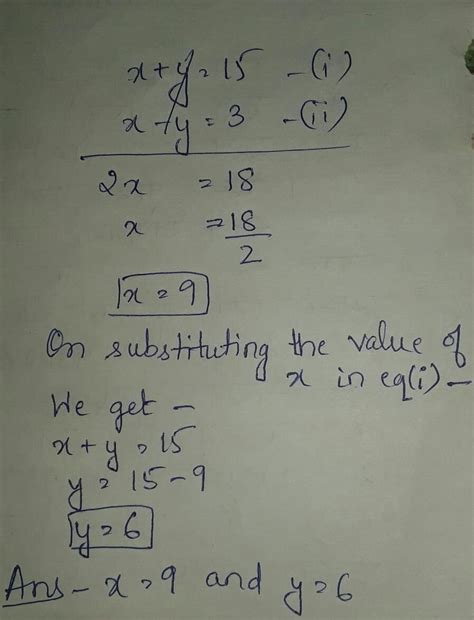 x+y=15 -(i)
x-y=3 -(ii)
2x =18
x =18/2
x=9
On substituting the value of
x in eq(i)-
We get -
x+y=15
y=15-9
y=6
Ans - x=9 and y=6